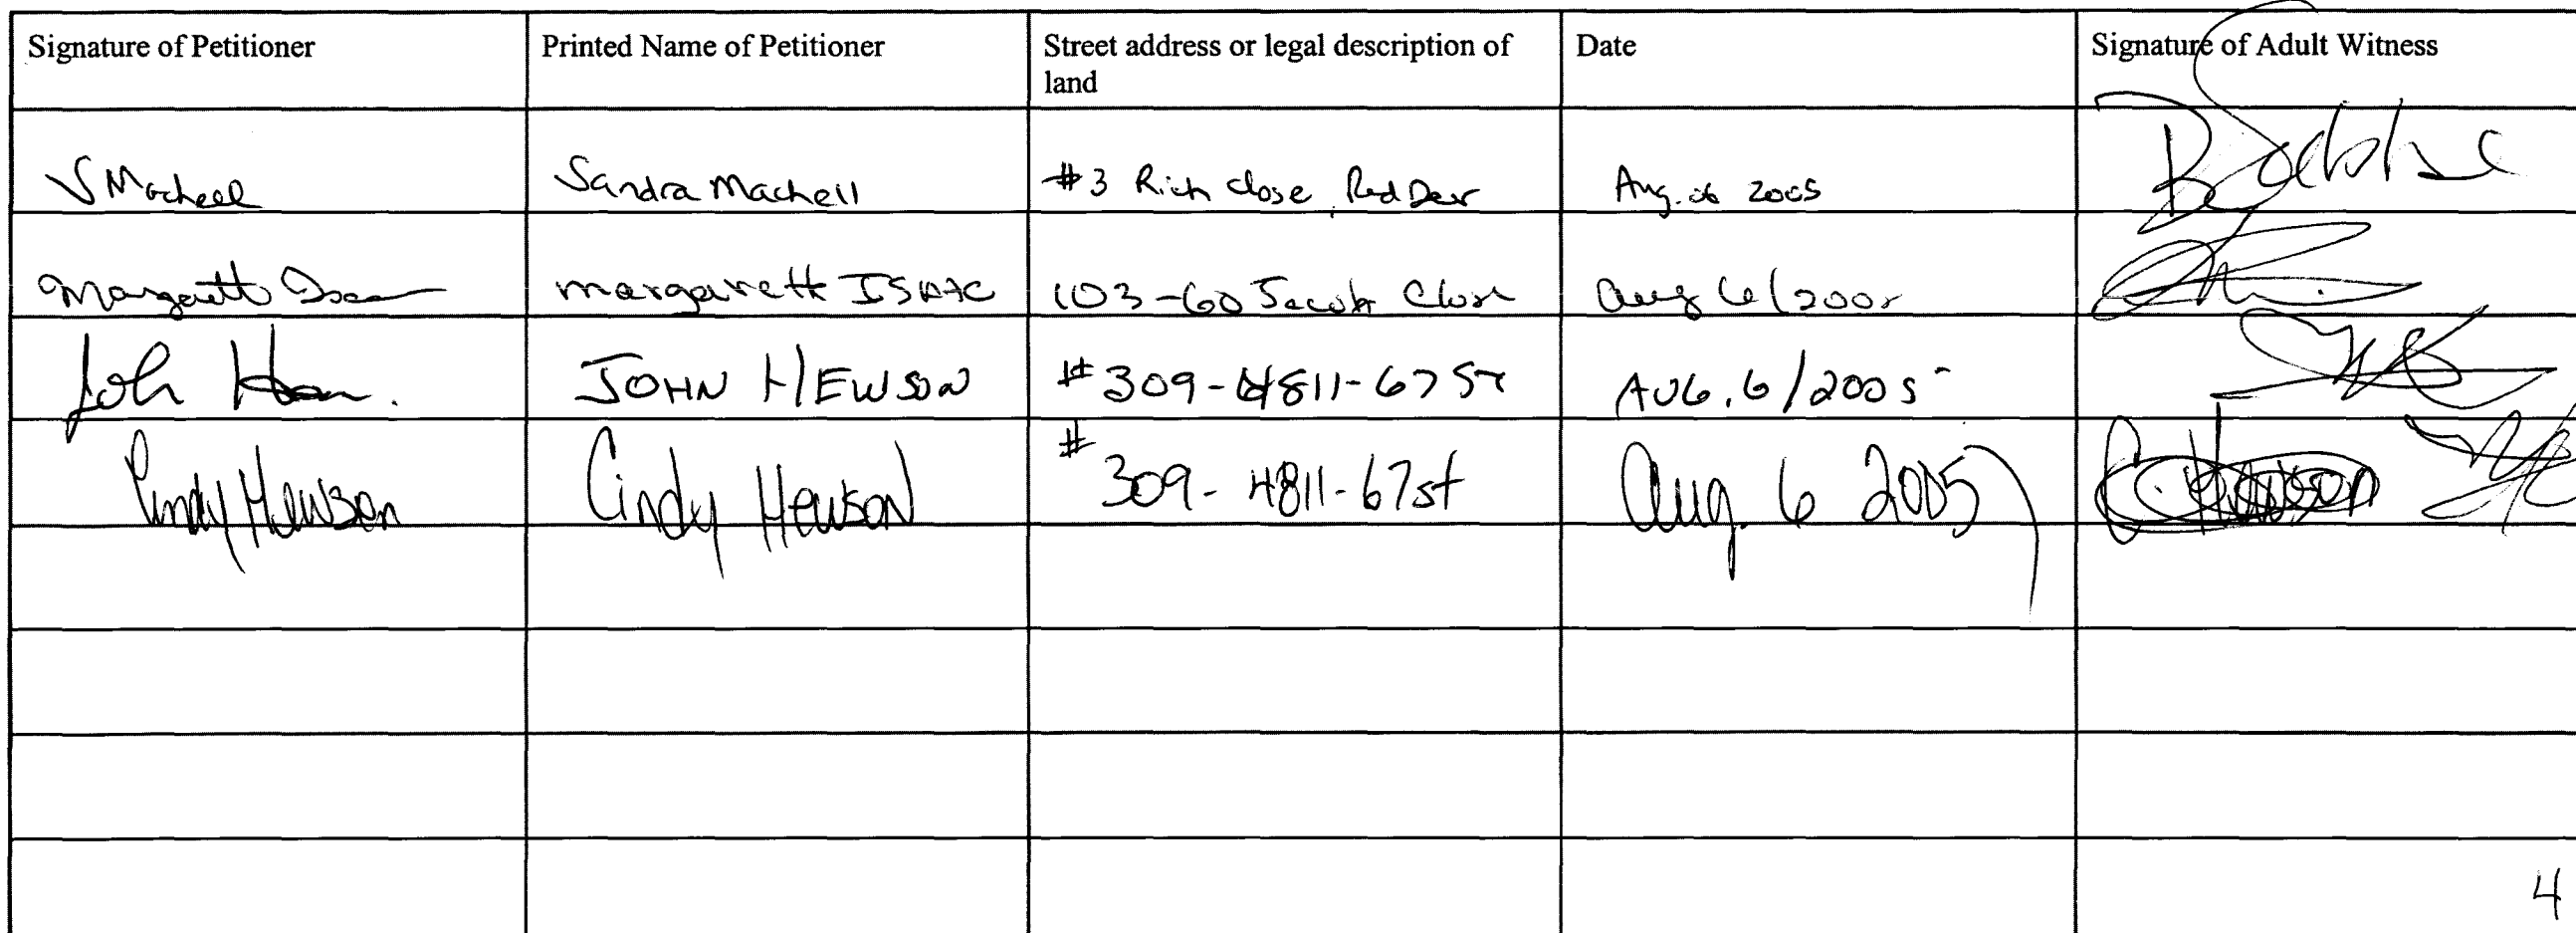 Signature of Petitioner Printed Name of Petitioner Street address or legal description of land Date Signature of Adult Witness
S Machell Sandra Machell #3 Rich Close, Red Deer Aug. 06 2005
Margarett Isaac margarett ISAAC 103-60 Jacob Close Aug 6/2005
John JOHN HEWSON #309-4811-67 ST AUG. 6/2005
Cindy Hewson Cindy Hewson #309-4811-67st Aug. 6 2005 C. Hewson
4